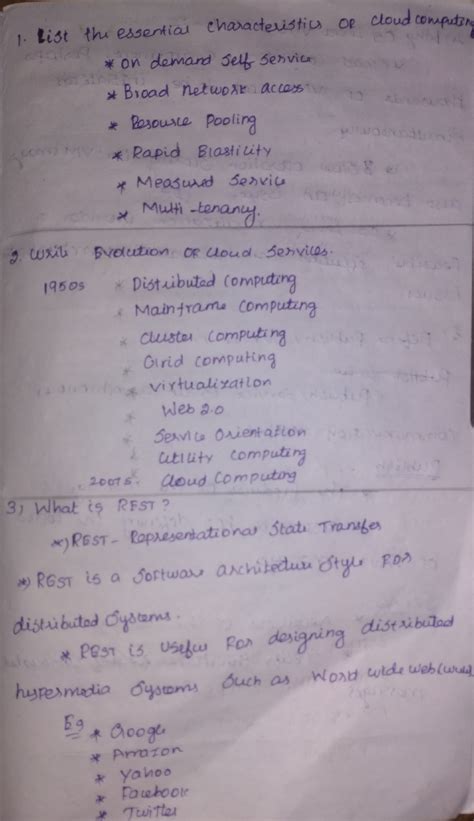 1. List the essential characteristics of cloud computing
* on demand self service
* Broad network access
* Resource Pooling
* Rapid Elasticity
* Measured Service
* Multi-tenancy.
2. Write Evolution of cloud services.
1950s * Distributed computing
* Mainframe computing
* cluster computing
Grid computing
* virtualization
* Web 2.0
* Service Orientation
* utility computing
2007s. cloud computing
3) What is REST?
*) REST - Representational State Transfer
*) REST is a software architecture style for
distributed systems.
* REST is useful for designing distributed
hypermedia systems such as World wide web (www)
Eg * Google
* Amazon
* Yahoo
* Facebook
* Twitter